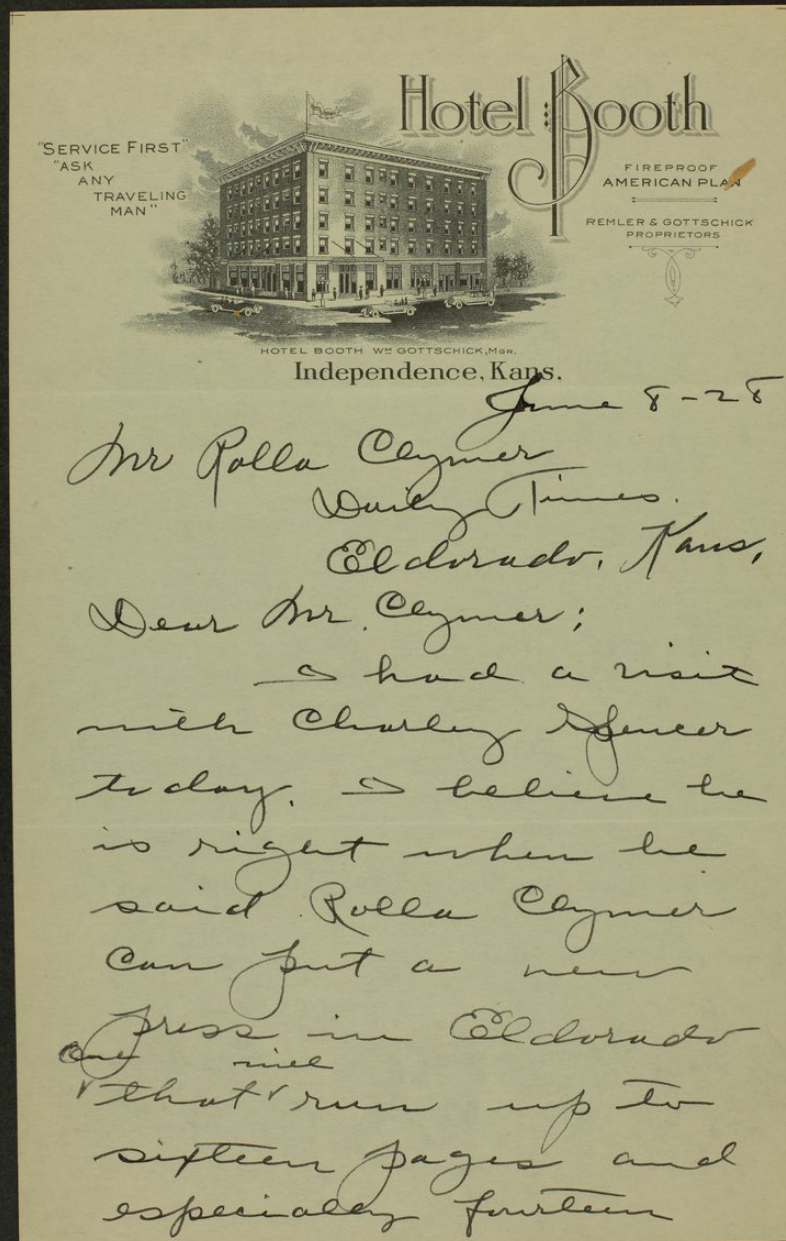 Hotel Booth
"SERVICE FIRST"
"ASK
ANY
TRAVELING
MAN"
FIREPROOF
AMERICAN PLAN
REMLER & GOTTSCHICK
PROPRIETORS
HOTEL BOOTH Wm GOTTSCHICK, MGR.
Independence, Kans.
June 8-28
Mr Rolla Clymer
Daily Times.
Eldorado, Kans,
Dear Mr. Clymer;
I had a visit
with Charley Spencer
today. I believe he
is right when he
said Rolla Clymer
can put a new
press in Eldorado
one will
that run up to
sixteen pages and
especially fourteen